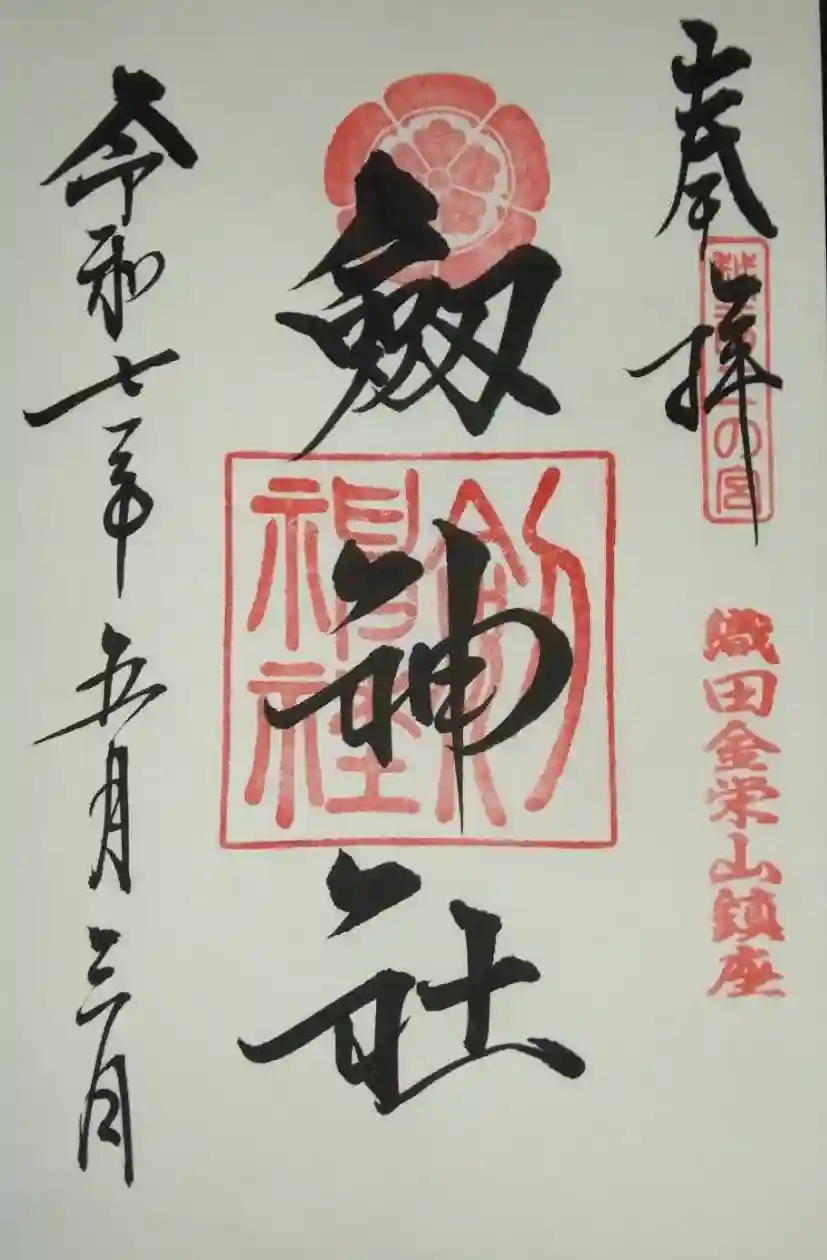 奉拝
越前二の宮
織田金栄山鎮座
劔神社
劔神社
令和七年五月三日